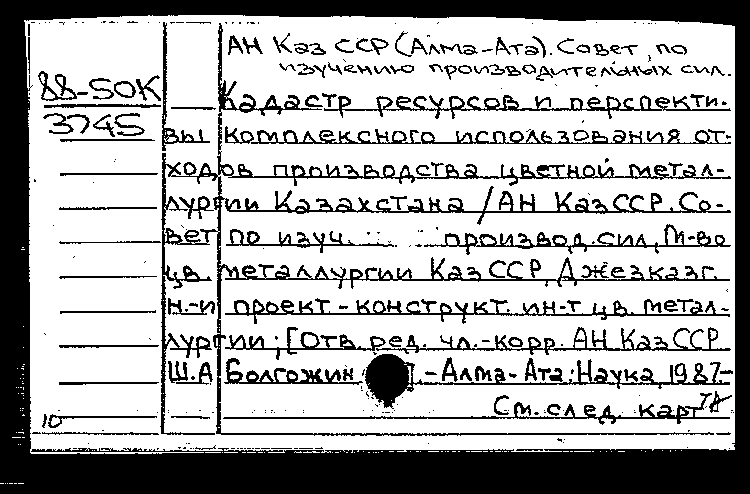 АН Каз ССР (Алма-Ата). Совет по
изучению производительных сил.
88-50К
3745
Кадастр ресурсов и перспекти-
вы комплексного использования от-
ходов производства цветной метал-
лургии Казахстана / АН КазССР. Со-
вет по изуч. производ. сил, М-во
цв. металлургии Каз ССР, Джезказг.
н.-и проект.-конструкт. ин-т цв. метал-
лургии; [Отв. ред. чл.-корр. АН КазССР
Ш.А Болгожин ]. - Алма-Ата: Наука, 1987.-
См. след. карт
10